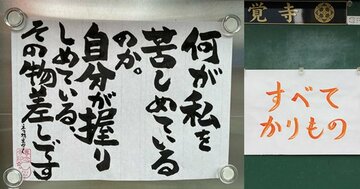 何が私を
苦しめている
のか。
自分が握り
しめている
その物差しです
覚寺
すべて
かりもの